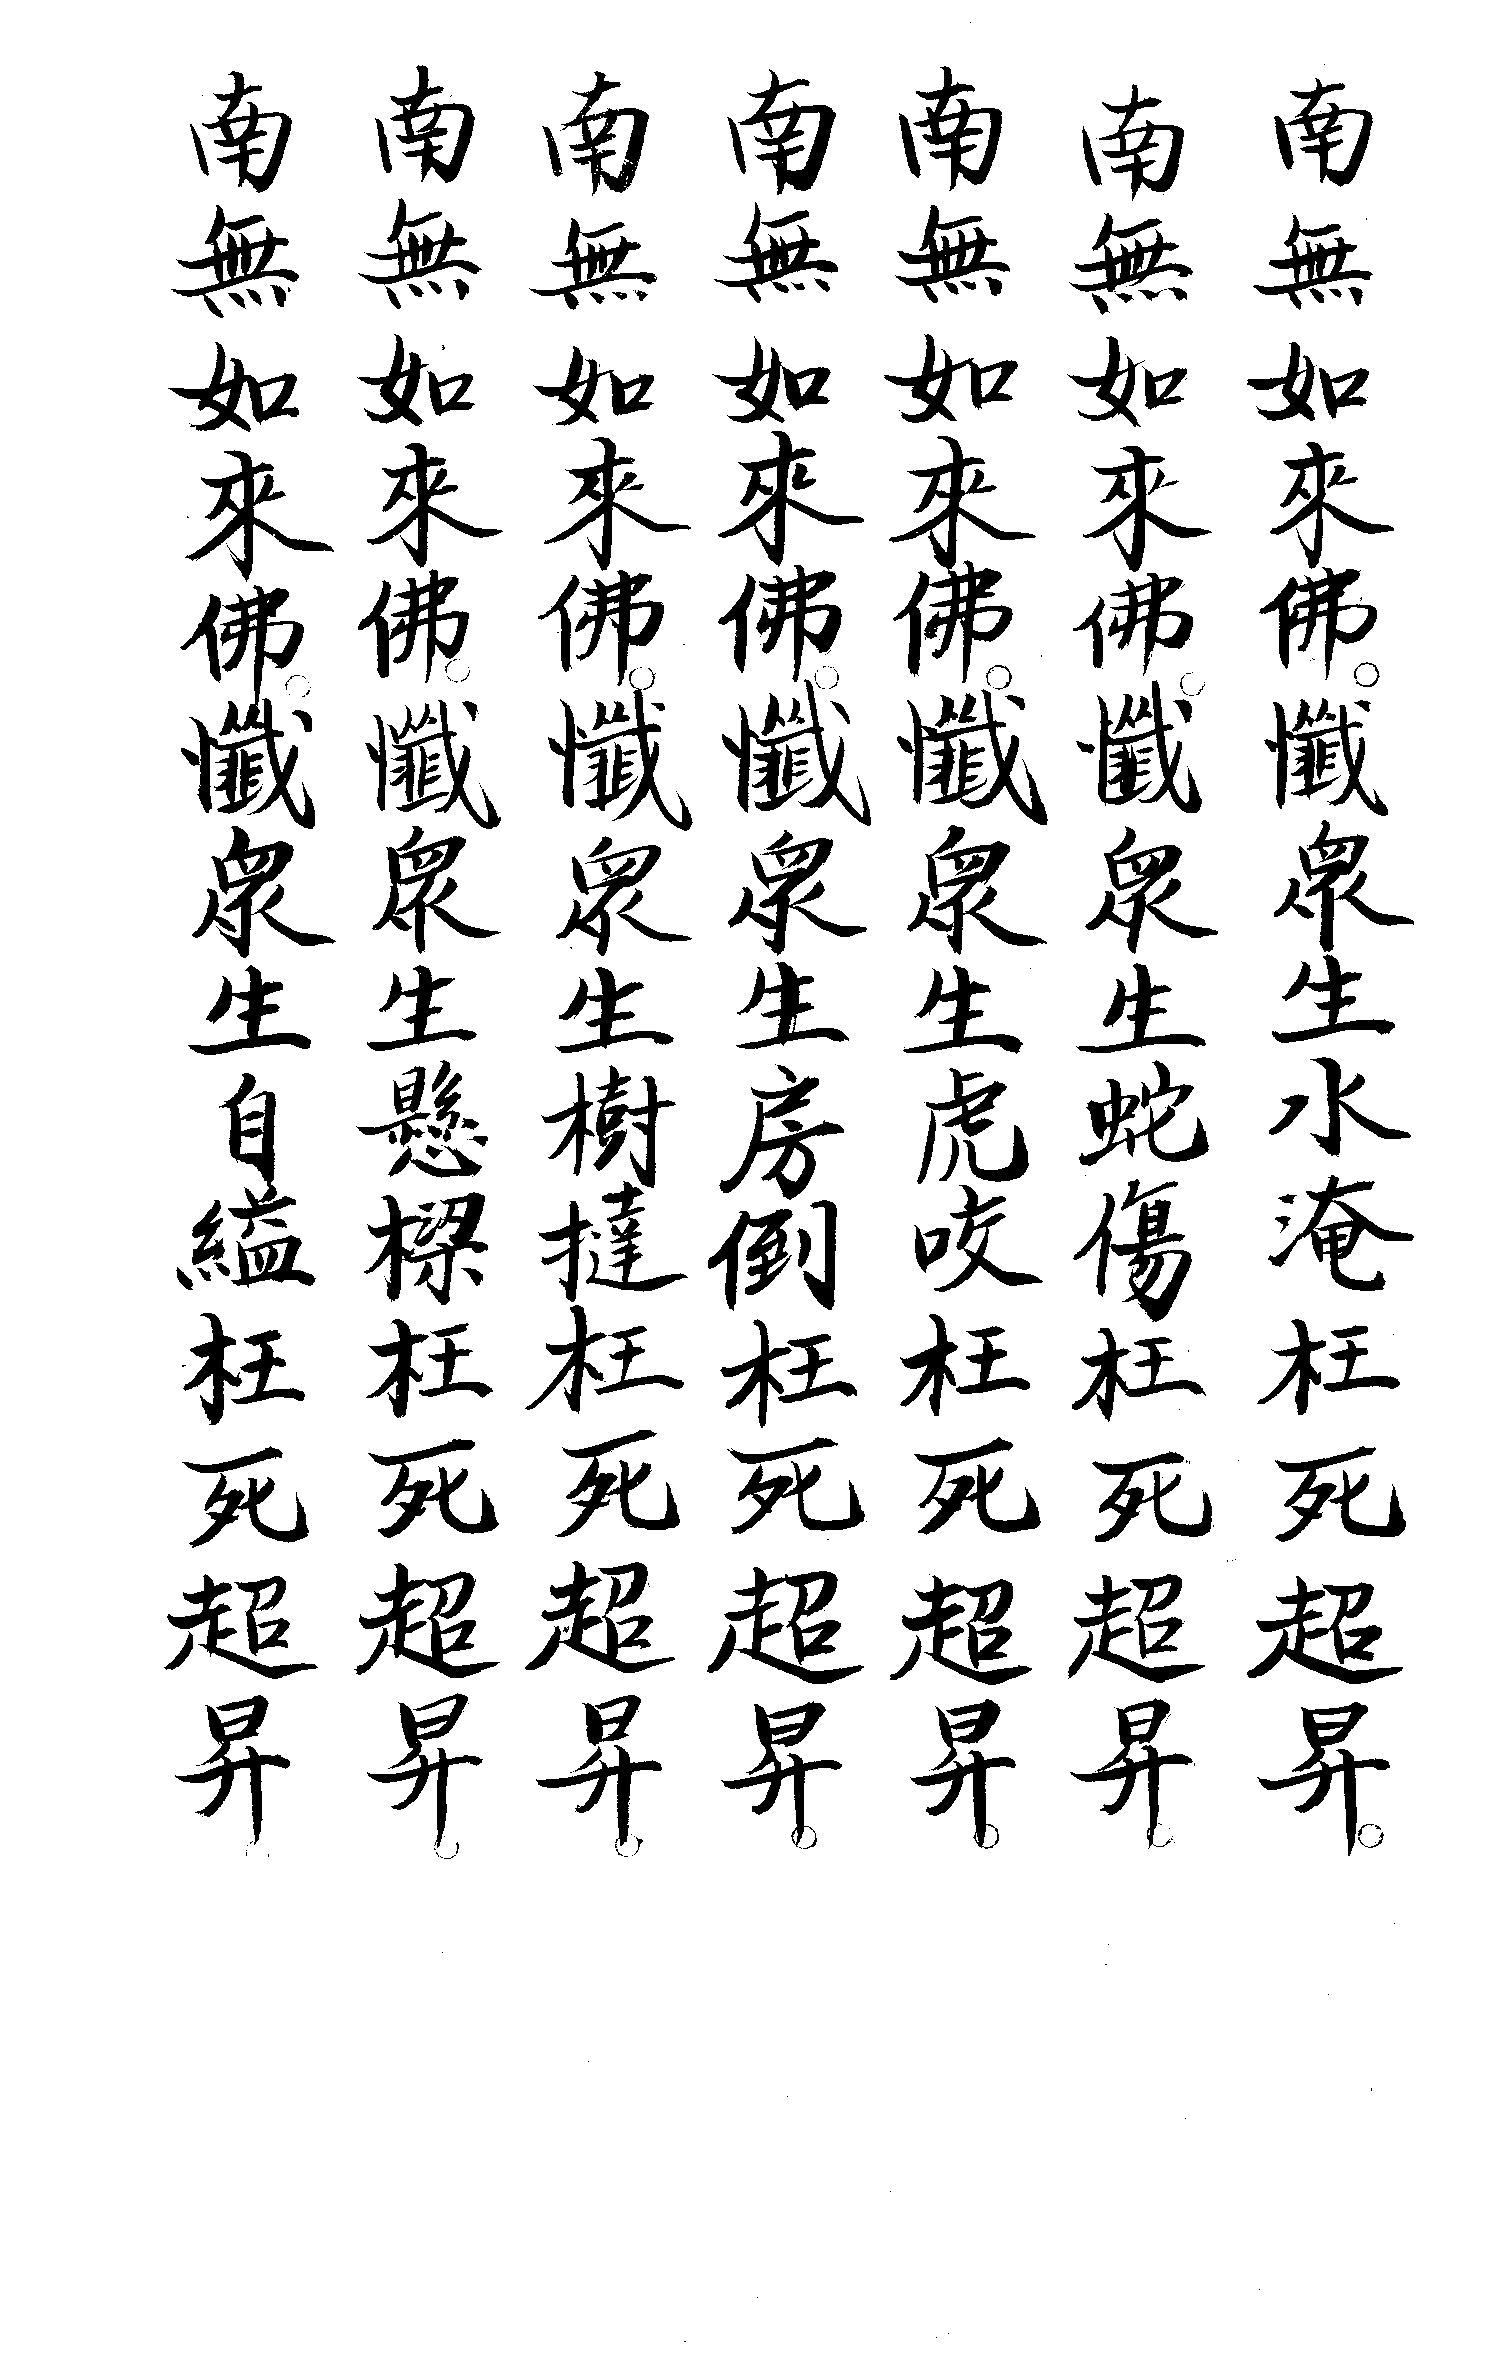 南無如來佛。懺衆生水淹枉死超昇。
南無如來佛。懺衆生蛇傷枉死超昇。
南無如來佛。懺衆生虎咬枉死超昇。
南無如來佛。懺衆生房倒枉死超昇。
南無如來佛。懺衆生樹撻枉死超昇。
南無如來佛。懺衆生懸樑枉死超昇。
南無如來佛。懺衆生自縊枉死超昇。